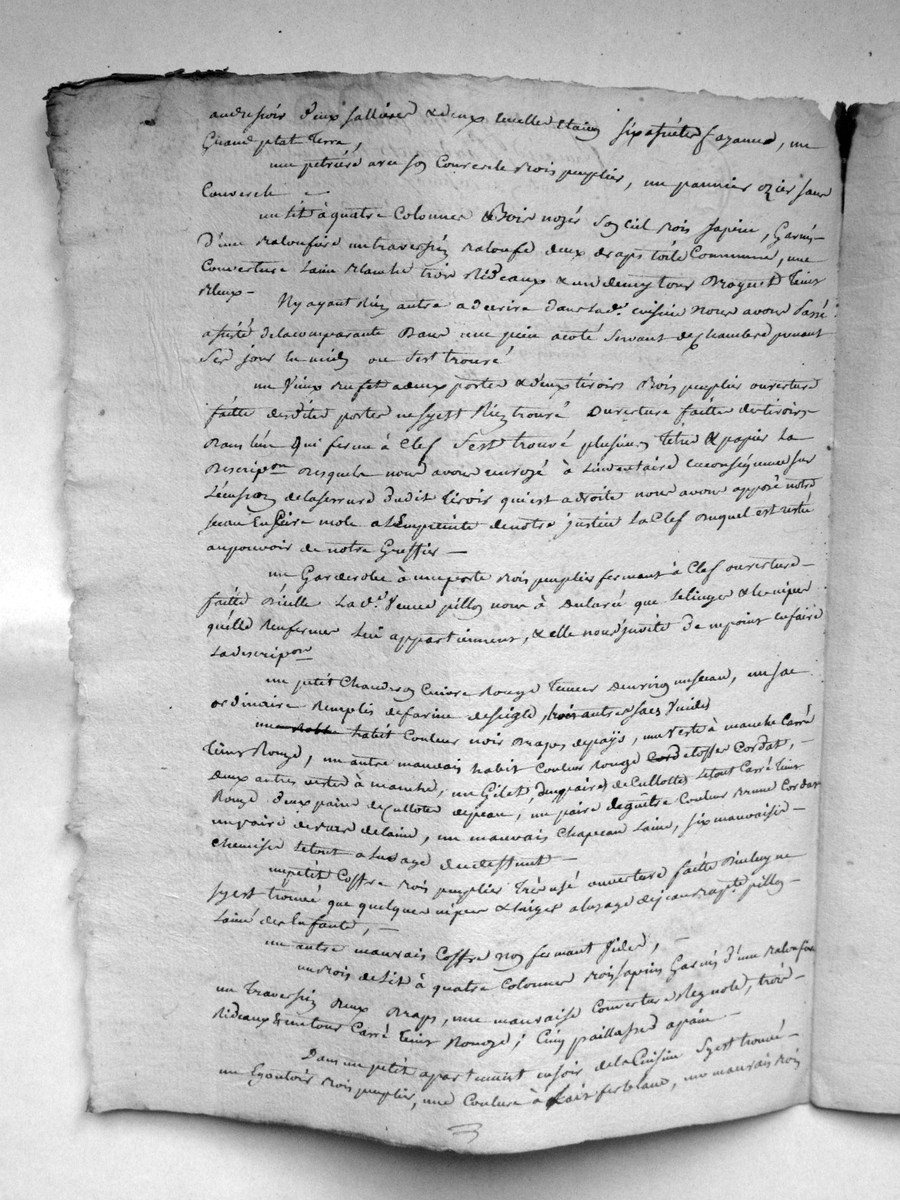 deux sallieres & deux ecuelles Etain, six assiettes fayance, un
Grand plat Terre,
une petriere avec son Couvercle bois puplier, un pannier ozier sans
Couvercle —
un lit à quatre Colonnes Bois noyer Son ciel bois sapin, Garni
D'une Baloufiere un traversin Baloufe deux draps toile Commune, une
Couverture laine blanche trois Rideaux & un demy tour Broquet teint
bleux —
N'y ayant Rien autre a decrire dans lad.e cuisine Nous avons Passé
assisté de la comparante Dans une piece a coté Servant de Chambre prenant
Ses jours le midy ou S'est trouvé
un vieux bufet a deux portes & deux tiroirs Bois puplier ouverture
faitte desdites portes ne S'y est Rien trouvé ouverture faitte des tiroirs
Dans l'un Qui ferme à Clef S'est trouvé plusieurs titres & papier La
Description desquels nous avons renvoyé à L'inventaire en conséquence sur
L'entrée de la serrure dudit tiroir qui est a droite nous avons apposé notre
sceau En Cire mole a L'Empreinte de notre justice La Clef duquel est resté
au pouvoir de notre Greffier —
une Garderobe à une porte bois puplier fermant à Clef ouverture
faitte d'icelle Lad.e Veuve pillon nous à Declaré que le linge & les nipes
qu'elle Renferme lui appartiennent, & elle nous invité de ne point en faire
La descripon
un petit Chauderon Cuivre Rouge tenant Environ un seau, un sac
ordinaire Remplis de farine de seigle, trois autres sacs Vuides
habit Couleur noir Drap de païs, une Veste à manche Carré
teint Rouge, un autre mauvais habit Couleur Rouge Cordat, —
deux autres vestes à manche, un Gilet, deux paires de Cullottes le tout Carré teint
Rouge deux paires de Cullottes de peau, une paire de guêtre Couleur brune Cordat
une paire de bas de laine, un mauvais Chapeau laine, six mauvaises —
chemises le tout a l'usage du deffunt —
un petit Coffre bois puplier ouverture faitte D'iceluy ne
S'y est trouvé que quelques nipes & linges a l'usage de jean bapte pillon
L'ainé des Enfants, —
un autre mauvais Coffre non fermant Vuide, —
un bois de Lit à quatre Colonnes bois sapin Garnis d'une Baloufiere
un Traversin deux Draps, une mauvaise Couverture, trois —
Rideaux & un tour Carré teint Rouge; Cinq paillasses a pain —
Dans un petit apartement de la Cuisine S'y est trouvé —
un Egoutoir bois puplier, une Couloire à Lait fer blanc, un mauvais bois